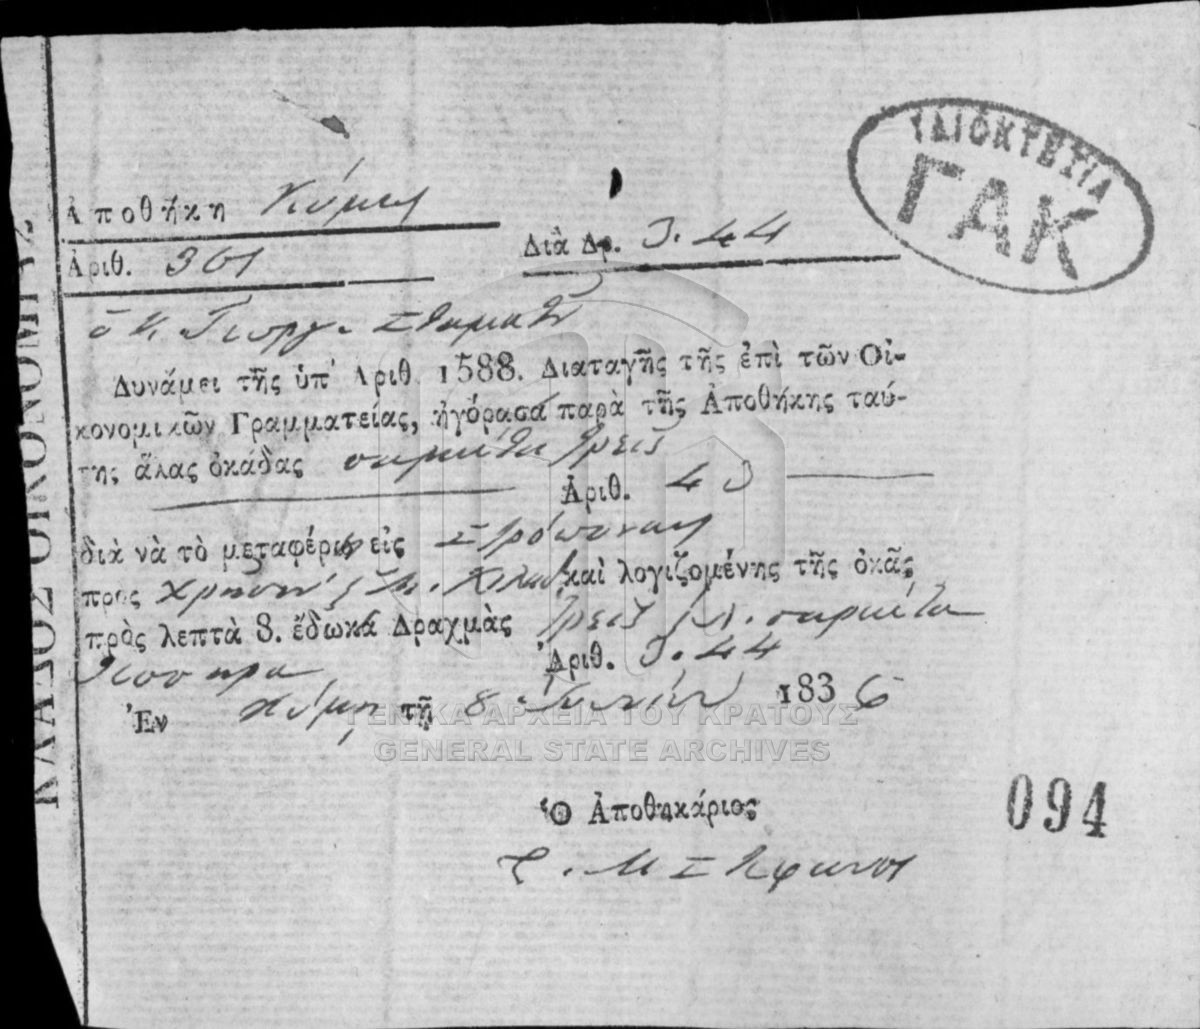 ΙΔΙΟΚΤΕΣΙΑ
ΓΑΚ
Ἀποθήκη Κύμης
Ἀριθ. 301
Διὰ Δρ. 3.44
ὁ Κ. Γεωργ. Σταματίου
Δυνάμει τῆς ὑπ' Ἀριθ. 1588. Διαταγῆς τῆς ἐπὶ τῶν Οἰ-
κονομικῶν Γραμματείας, ἠγόρασα παρὰ τῆς Ἀποθήκης ταύ-
της ἅλας ὀκάδας σαράντα τρεῖς
Ἀριθ. 43
διὰ νὰ τὸ μεταφέρω εἰς Στρόπονας
προς χρῆσιν καὶ λογιζομένης τῆς ὀκᾶς
πρὸς λεπτὰ 8. ἔδωκα Δραχμὰς τρεῖς σαράντα
τέσσαρα Ἀριθ. 3.44
Ἐν Κύμῃ τῇ 8 Ἰουνίου 1836
Ὁ Ἀποθηκάριος
ΚΛΑΔΟΣ ΟΙΚΟΝΟΜΙΑΣ
ΓΕΝΙΚΑ ΑΡΧΕΙΑ ΤΟΥ ΚΡΑΤΟΥΣ
GENERAL STATE ARCHIVES
094